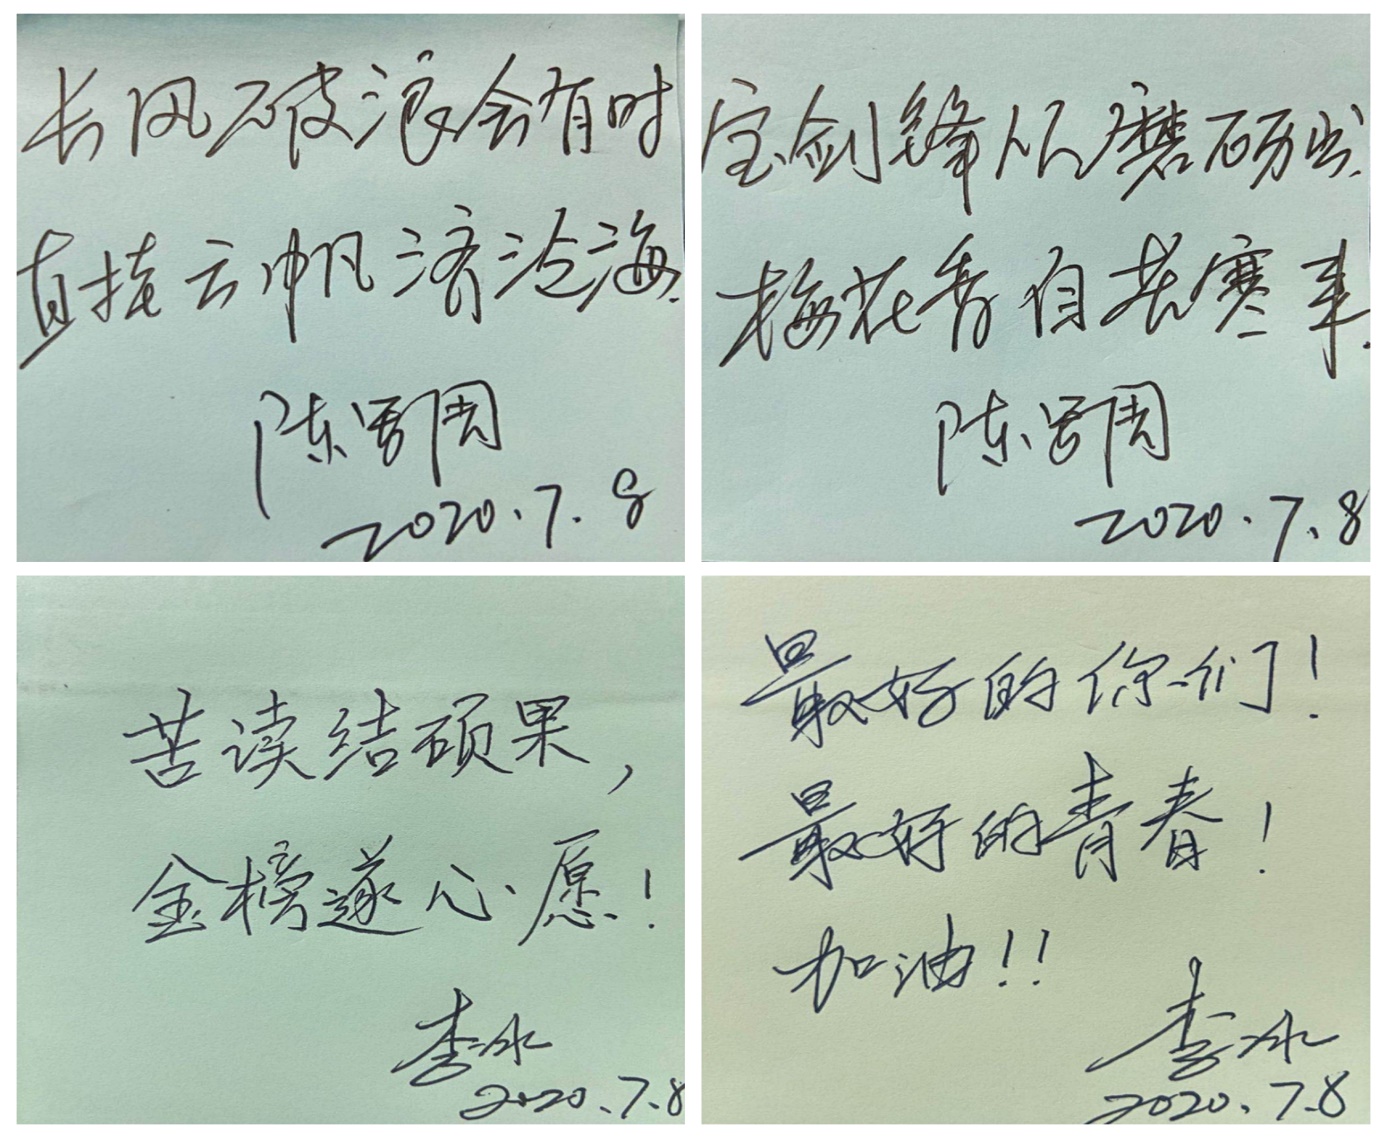 长风破浪会有时
直挂云帆济沧海.
陈
2020.7.8
宝剑锋从磨砺出.
梅花香自苦寒来.
陈
2020.7.8
苦读结硕果，
金榜遂心愿！
李冰
2020.7.8
最好的你们！
最好的青春！
加油！！
李冰
2020.7.8